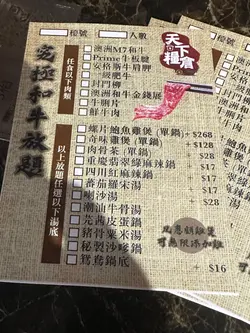 檯號 人數
天下糧倉
究極和牛放題
任食以下肉類
澳洲M7和牛
Prime牛板腱
安格斯牛肩胛
一級肥牛
封門柳
澳洲和牛金錢展
牛脷片
鮮牛肉
以上放題任選以下湯底
螺片鮑魚雞煲 (單鍋) +$268
奇味雞煲 (單鍋) +$128
肉骨茶 (單鍋) +$28
重慶翡翠麻辣鍋 +$17
四川紅麻辣鍋 +$17
蕃茄羅宋湯
喇沙湯
潮汕牛骨湯
芫茜皮蛋鍋
豬骨粟米鍋
秘製沙嗲鍋
鴛鴦鍋底 +$16